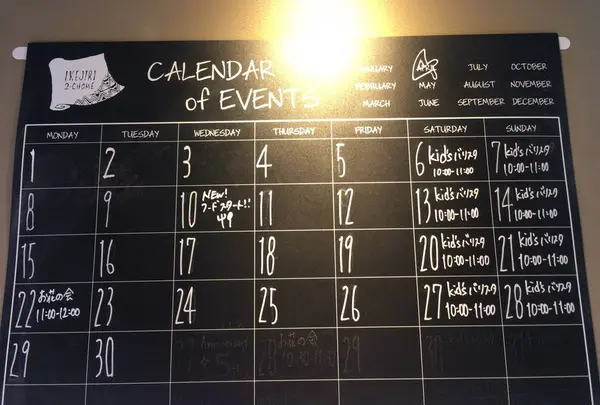 IKEJIRI
2-CHOME
CALENDAR
of EVENTS
JULY OCTOBER
FEBRUARY MAY AUGUST NOVEMBER
MARCH JUNE SEPTEMBER DECEMBER
MONDAY TUESDAY WEDNESDAY THURSDAY FRIDAY SATURDAY SUNDAY
1 2 3 4 5 6 kid'sバリスタ 7 kid'sバリスタ
10:00-11:00 10:00-11:00
8 9 10 NEW! 11 12 13 kid'sバリスタ 14 kid'sバリスタ
フードスタート!! 10:00-11:00 10:00-11:00
15 16 17 18 19 20 kid'sバリスタ 21 kid'sバリスタ
10:00-11:00 10:00-11:00
22 お花の会 23 24 25 26 27 kid'sバリスタ 28 kid'sバリスタ
11:00-12:00 10:00-11:00 10:00-11:00
29 30 28 お花の会 29 30